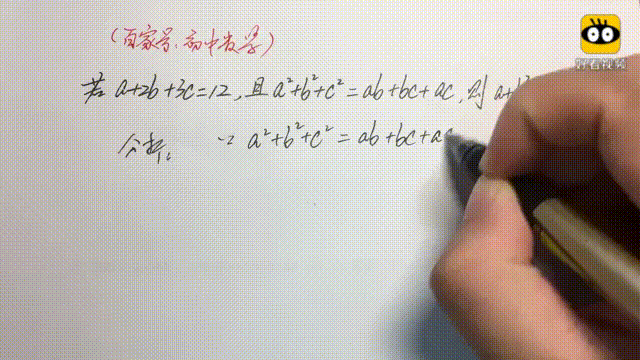 (百家号:高中数学)
好看视频
若 a+2b+3c=12, 且 a²+b²+c²=ab+bc+ac, 则 a+b²
分析: ∵ a²+b²+c²=ab+bc+ac